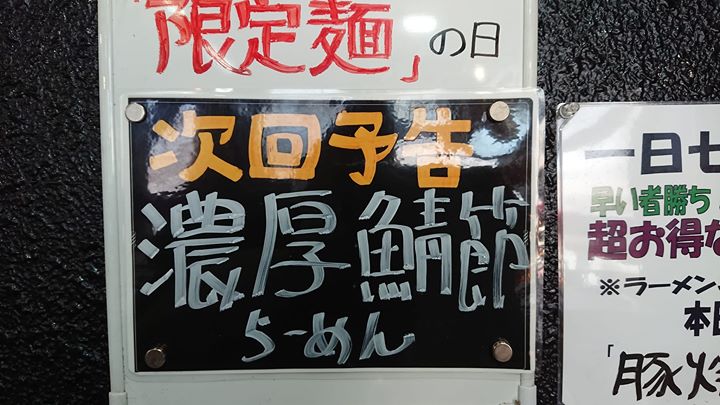 「限定麺」の日
次回予告
濃厚鯖節
らーめん
一日七
早い者勝ち
超お得な
※ラーメン
本日
「豚